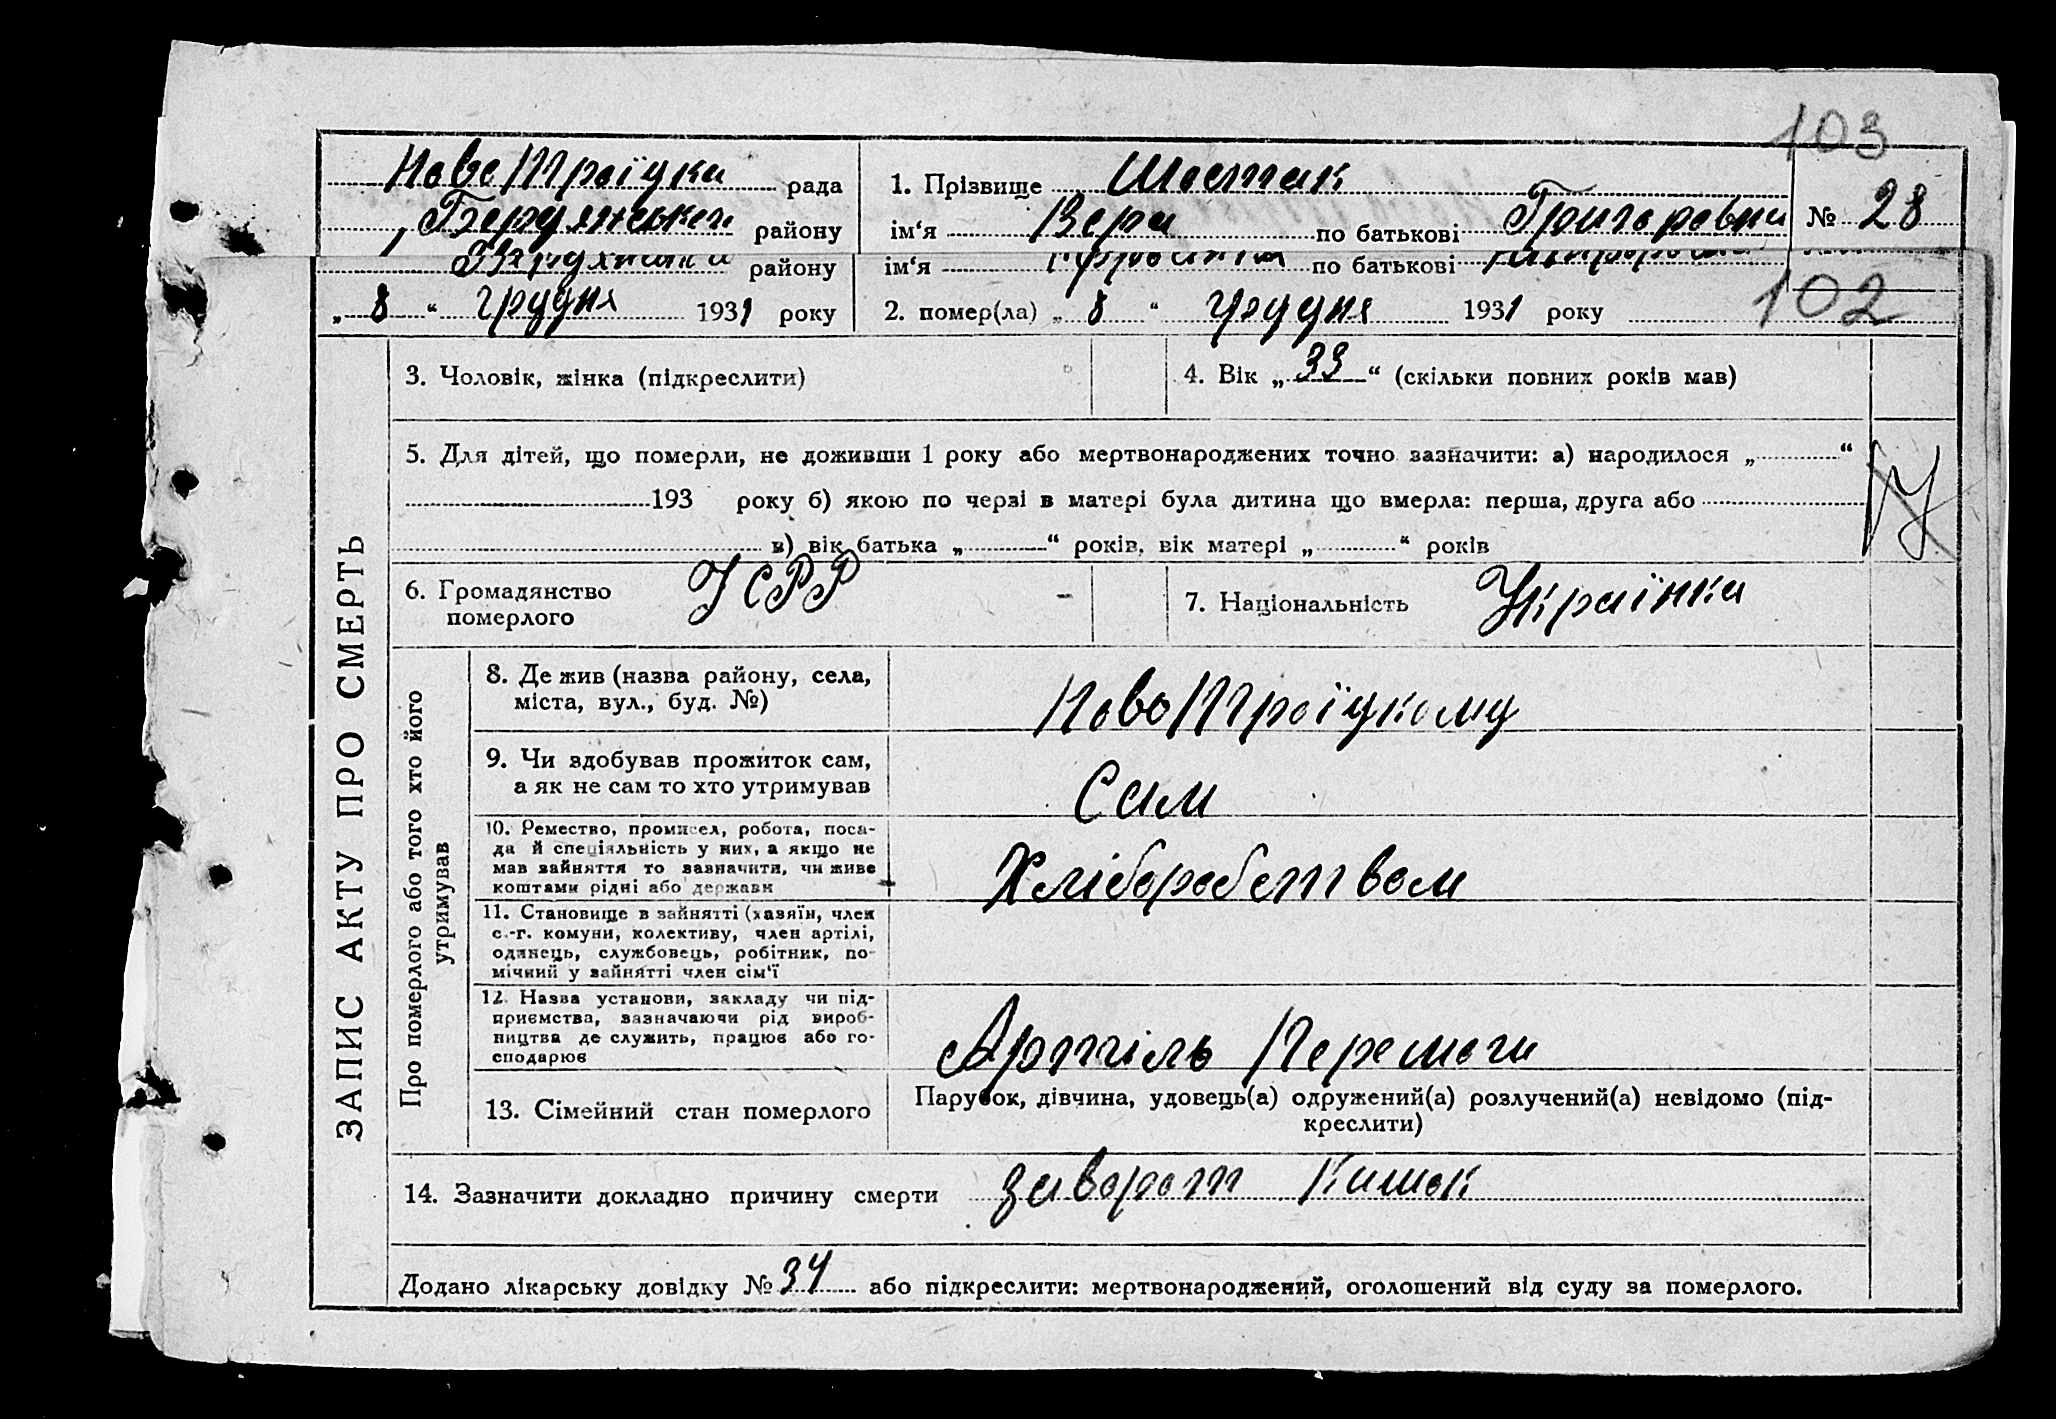 103
Ново Троїцка рада
Бердянського району
1. Прізвище Шостак
ім'я Вера по батькові Григоровна
№ 28
району
ім'я по батькові
„8“ грудня 1931 року
2. помер(ла) „8“ грудня 1931 року
102
ЗАПИС АКТУ ПРО СМЕРТЬ
3. Чоловік, жінка (підкреслити)
4. Вік „33“ (скільки повних років мав)
5. Для дітей, що померли, не доживши 1 року або мертвонароджених точно зазначити: а) народилося „ “
193 року б) якою по черзі в матері була дитина що вмерла: перша, друга або
в) вік батька „ “ років, вік матері „ “ років
6. Громадянство
померлого
УСРР
7. Національність Українка
Про померлого або того хто його
утримував
8. Де жив (назва району, села,
міста, вул., буд. №)
Ново Троїцкому
9. Чи здобував прожиток сам,
а як не сам то хто утримував
Сам
10. Ремество, промисел, робота, поса-
да й спеціяльність у них, а якщо не
мав зайняття то зазначити, чи живе
коштами рідні або держави
Хліборобством
11. Становище в зайнятті (хазяїн, член
с.-г. комуни, колективу, член артілі,
одинець, службовець, робітник, по-
мічний у зайнятті член сім'ї
12. Назва установи, закладу чи під-
приємства, зазначаючи рід вироб-
ництва де служить, працює або го-
сподарює
Артіль Перемога
13. Сімейний стан померлого
Парубок, дівчина, удовець(а) одружений(а) розлучений(а) невідомо (під-
креслити)
14. Зазначити докладно причину смерти заворот кишок
Додано лікарську довідку № 34 або підкреслити: мертвонароджений, оголошений від суду за померлого.